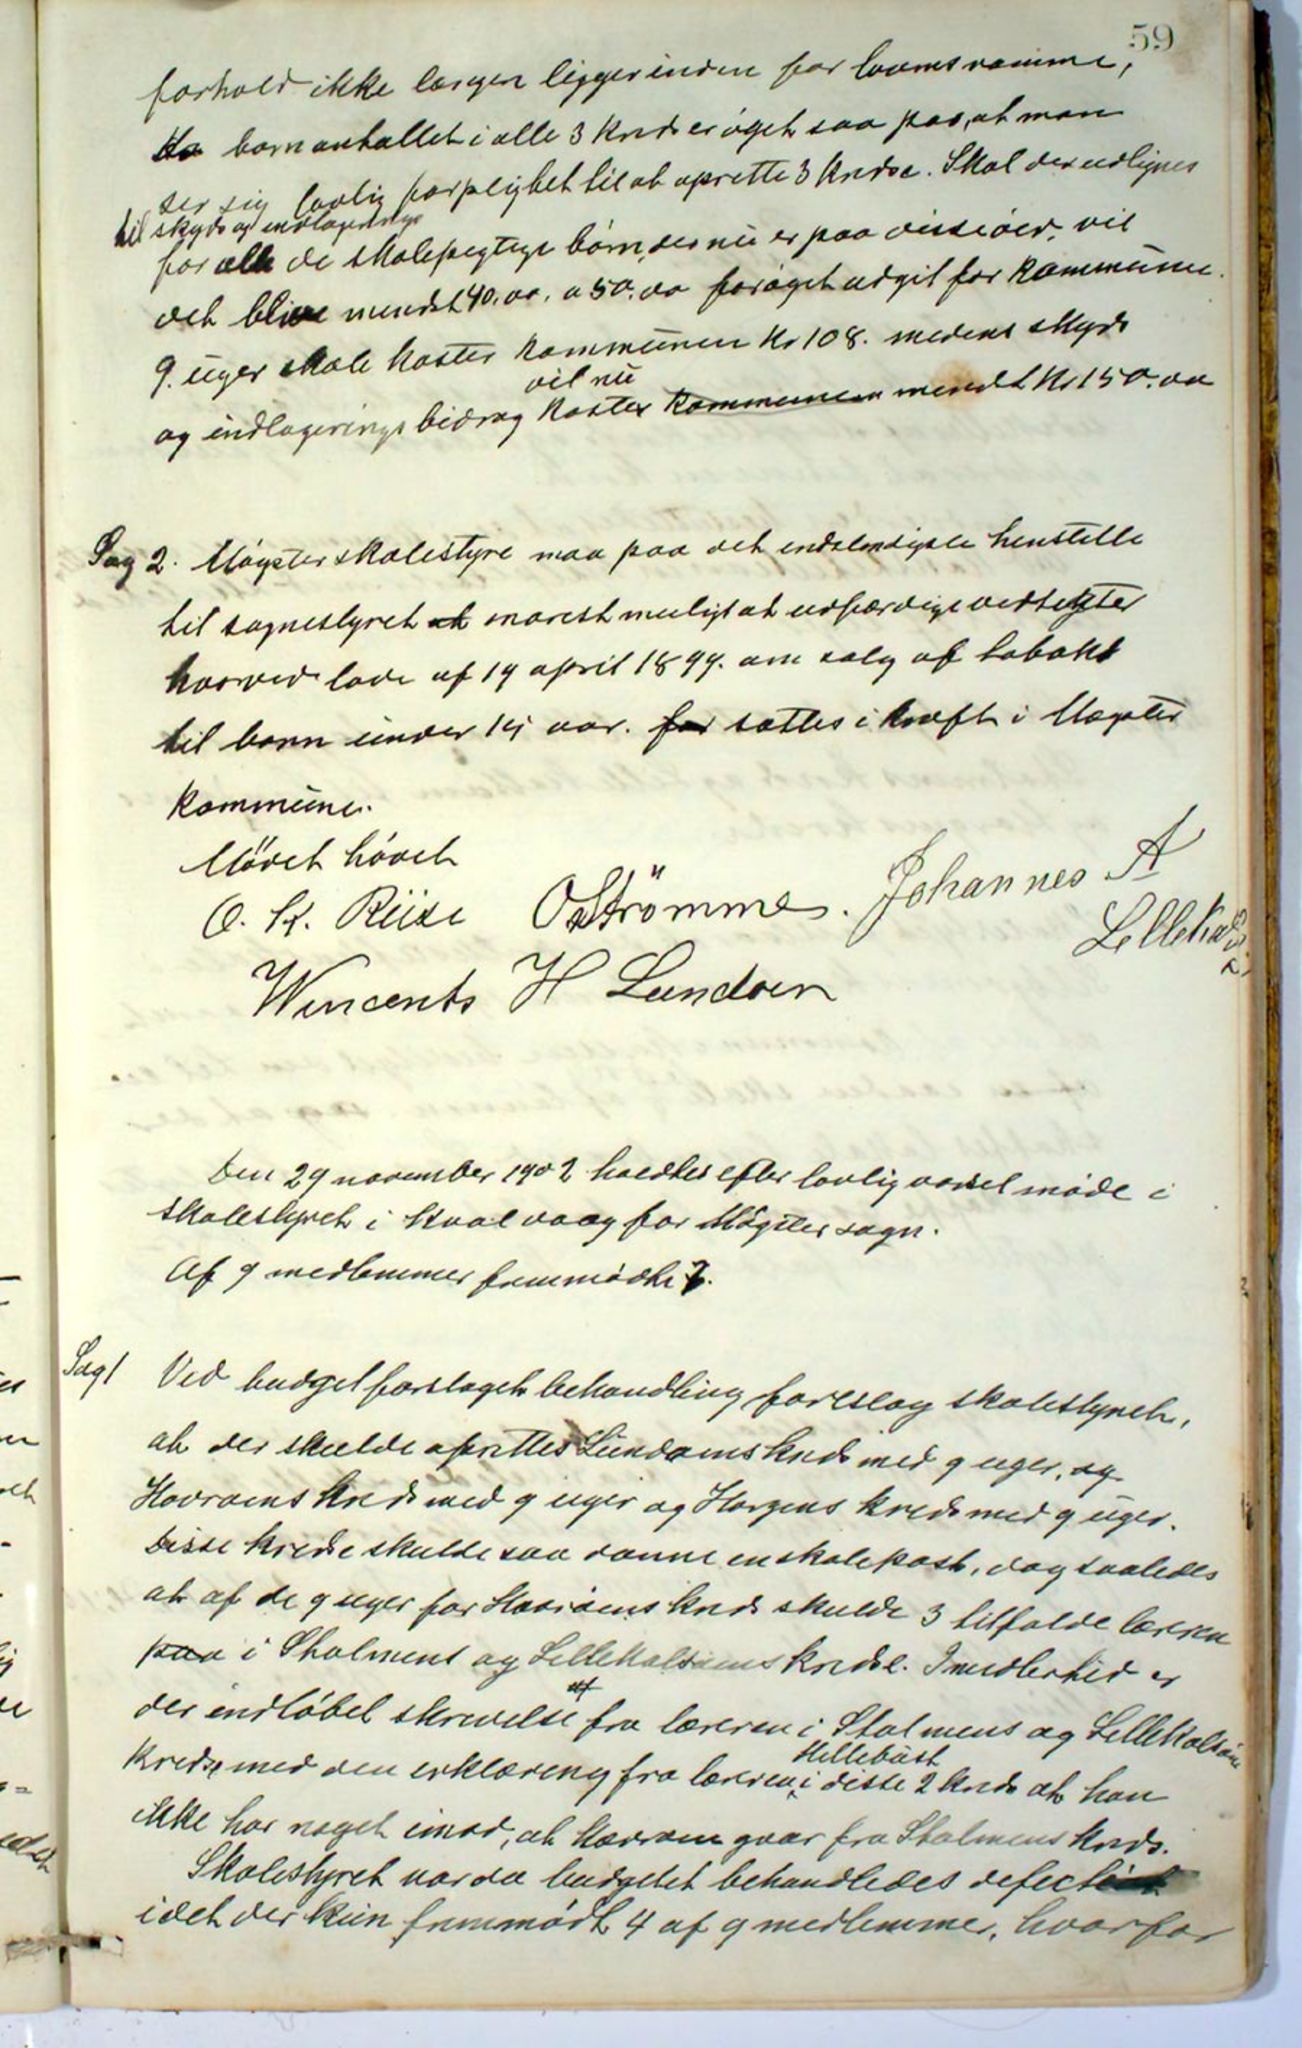 59
forhold ikke længer ligger inden for lovens ramme,
da barnantallet i alle 3 kreds er øget saa paa, at man
ser sig lovlig forpligtet til at oprette 3 kredse. Skal der udlignes
til skyds og indlogerings
for alle de skolepligtige børn, der nu er paa disse øer, vil
det blive mindst 40.00 a 50.00 forøget udgit for kommunen.
9. uger skole koster kommunen Kr 108. medens skyds
vil nu
og indlogerings bidrag koster kommunen mindst Kr 150.00
Sag 2. Møgster skolestyre maa paa det indstendigste henstille
til sognestyret at snarest muligt at udfærdige vedtegter
hvorved lov af 14 april 1899. om salg af tobakk
til barn under 15 aar. for sættes i kraft i Møgster
kommune.
Mödet hövet
O. K. Riise O Strömme. Johannes A
Lillekalsö
Wincents H Lundöen
Den 29 november 1902 holdtes efter lovlig varsel möde i
skolestyret i Kvalvaag for Møgster sogn.
Af 9 medlemmer fremmödte 7.
Sag 1 Ved budgetforslagets behandling foreslog skolestyret,
at der skulde oprettes Lundöens kreds med 9 uger, og
Hovröens kreds med 9 uger og Horgens kreds med 9 uger.
Disse kredse skulde saa danne en skolepost, dog saaledes
at af de 9 uger for Hovröens kreds skulde 3 tilfalde læreren
paa i Stolmens og Lillekalsöens kredse. Imidlertid er
der indløbet skrivelse af fra læreren i Stolmens og Lillekalsöens
Hillebüst
kredse med den erklæring fra læreren i disse 2 kreds at han
ikke har noget imod, at Hovröen gaar fra Stolmens kreds.
Skolestyret var da budgetet behandledes defect
idet der kun fremmödte 4 af 9 medlemmer, hvorfor